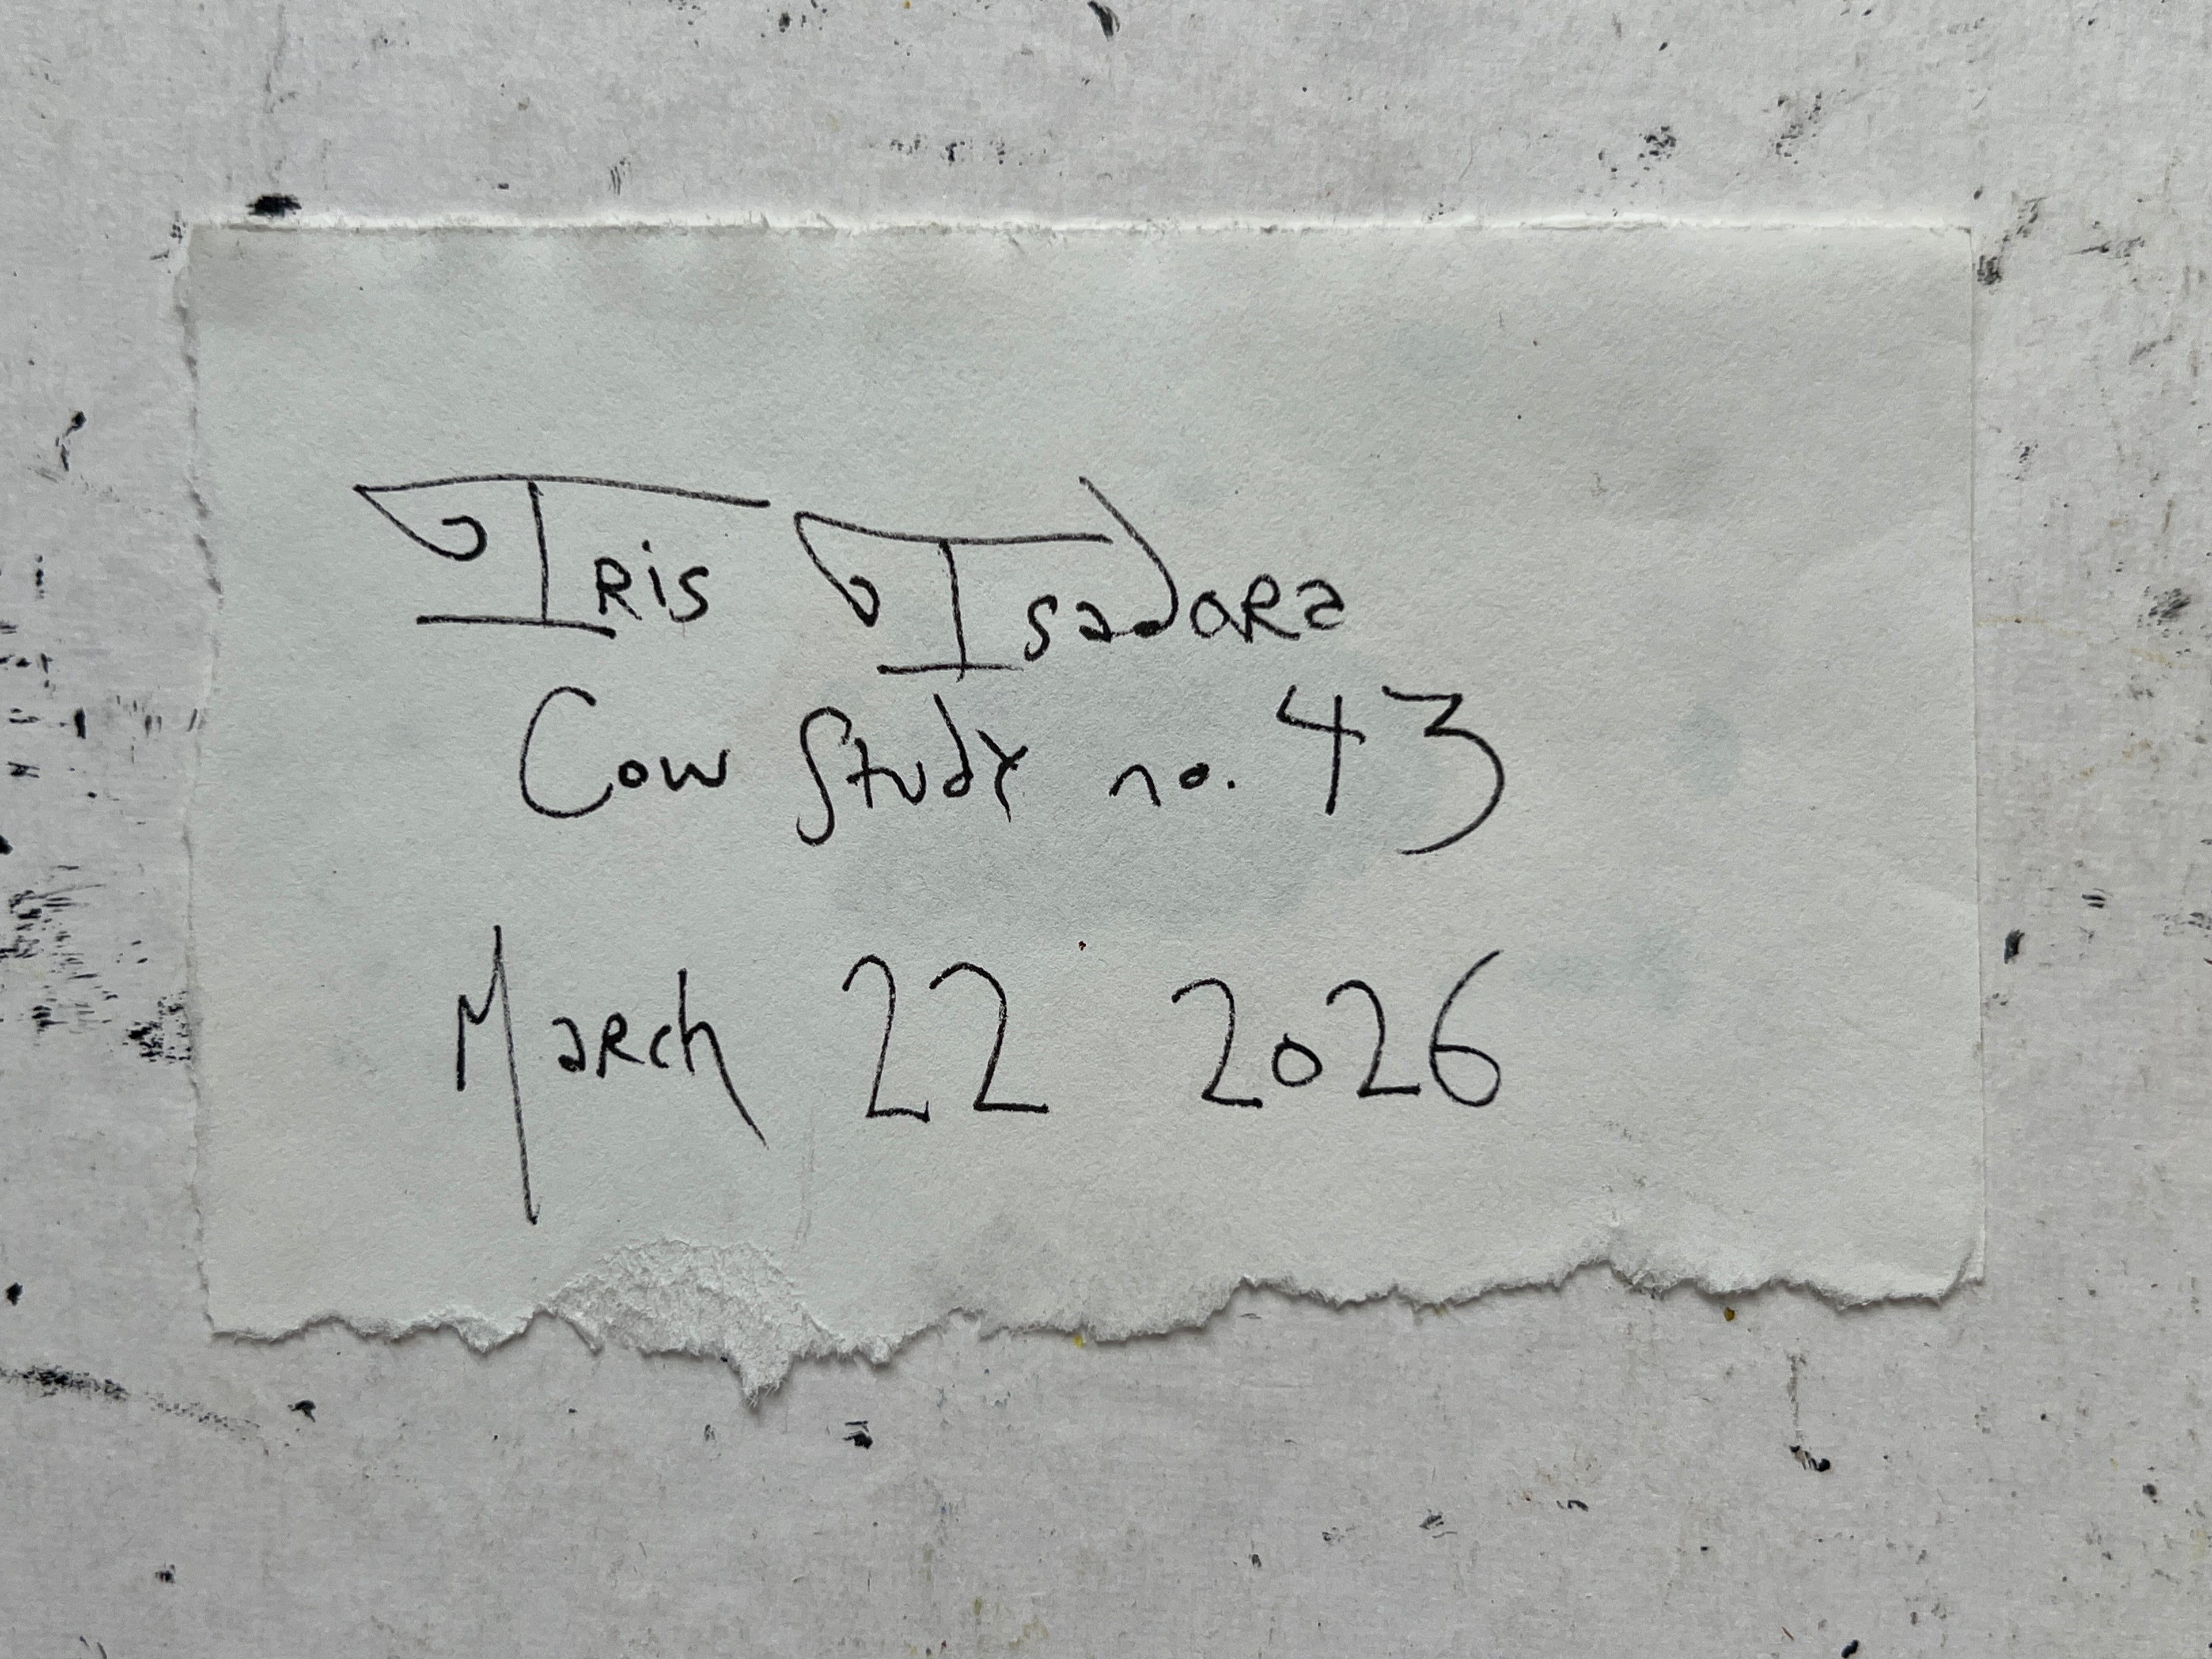 Iris Isadora
Cow Study no. 43
March 22 2026